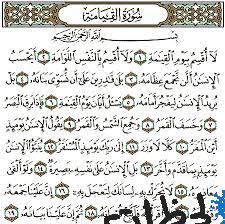 سُورَةُ القِيَامَةِ
بِسْمِ اللَّهِ الرَّحْمَٰنِ الرَّحِيمِ
لَا أُقْسِمُ بِيَوْمِ الْقِيَامَةِ ١ وَلَا أُقْسِمُ بِالنَّفْسِ اللَّوَّامَةِ ٢ أَيَحْسَبُ
الْإِنسَانُ أَلَّن نَّجْمَعَ عِظَامَهُ ٣ بَلَىٰ قَادِرِينَ عَلَىٰ أَن نُّسَوِّيَ بَنَانَهُ ٤ بَلْ
يُرِيدُ الْإِنسَانُ لِيَفْجُرَ أَمَامَهُ ٥ يَسْأَلُ أَيَّانَ يَوْمُ الْقِيَامَةِ ٦ فَإِذَا بَرِقَ الْبَصَرُ
٧ وَخَسَفَ الْقَمَرُ ٨ وَجُمِعَ الشَّمْسُ وَالْقَمَرُ ٩ يَقُولُ الْإِنسَانُ يَوْمَئِذٍ
أَيْنَ الْمَفَرُّ ١٠ كَلَّا لَا وَزَرَ ١١ إِلَىٰ رَبِّكَ يَوْمَئِذٍ الْمُسْتَقَرُّ ١٢ يُنَبَّأُ الْإِنسَانُ
يَوْمَئِذٍ بِمَا قَدَّمَ وَأَخَّرَ ١٣ بَلِ الْإِنسَانُ عَلَىٰ نَفْسِهِ بَصِيرَةٌ ١٤ وَلَوْ أَلْقَىٰ
مَعَاذِيرَهُ ١٥ لَا تُحَرِّكْ بِهِ لِسَانَكَ لِتَعْجَلَ بِهِ ١٦ إِنَّ عَلَيْنَا جَمْعَهُ
١٨ ثُمَّ إِنَّ عَلَيْنَا بَيَانَهُ ١٩